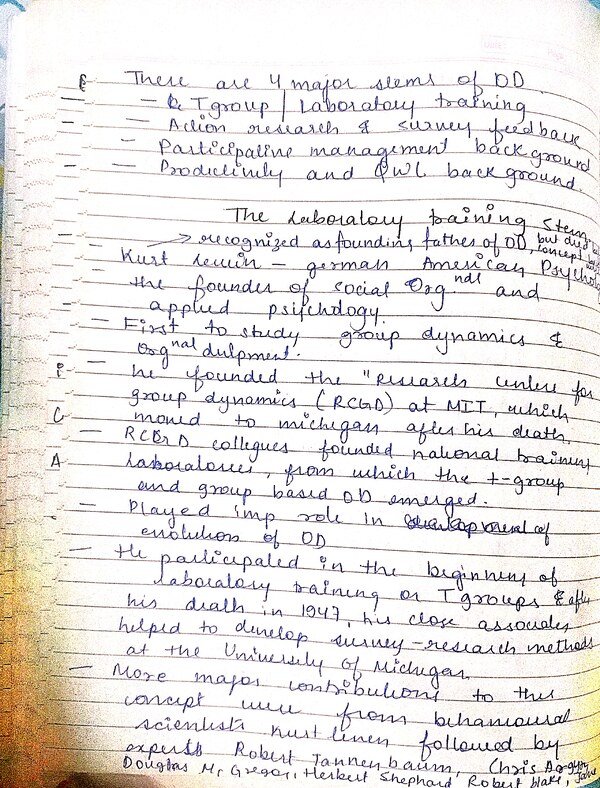 There are 4 major stems of OD
- T group / Laboratory training
- Action research & survey feedback
- Participative management background
- Productivity and QWL background.
The Laboratory training stem
→ recognized as founding father of OD, but died concept
- Kurt Lewin - german American Psycho
the founder of social Org.nal and
applied psychology.
- First to study group dynamics &
Orgnal dvlpment.
- he founded the "Research center for
group dynamics (RCGD) at MIT, which
moved to michigan after his death,
- RCGD collegues founded national training
laboratories, from which the t-group
and group based OD emerged.
- Played imp role in
evolution of OD
- He participated in the beginning of
laboratory training or T groups & after
his death in 1947, his close associates
helped to develop survey-research methods
at the University Of Michigan.
- More major contributions to this
concept were from behavioural
scientists kurt Lewin followed by
experts Robert Tannenbaum, Chris Argyris
Douglas Mc Gregor, Herbert Shephard Robert blake, Jane